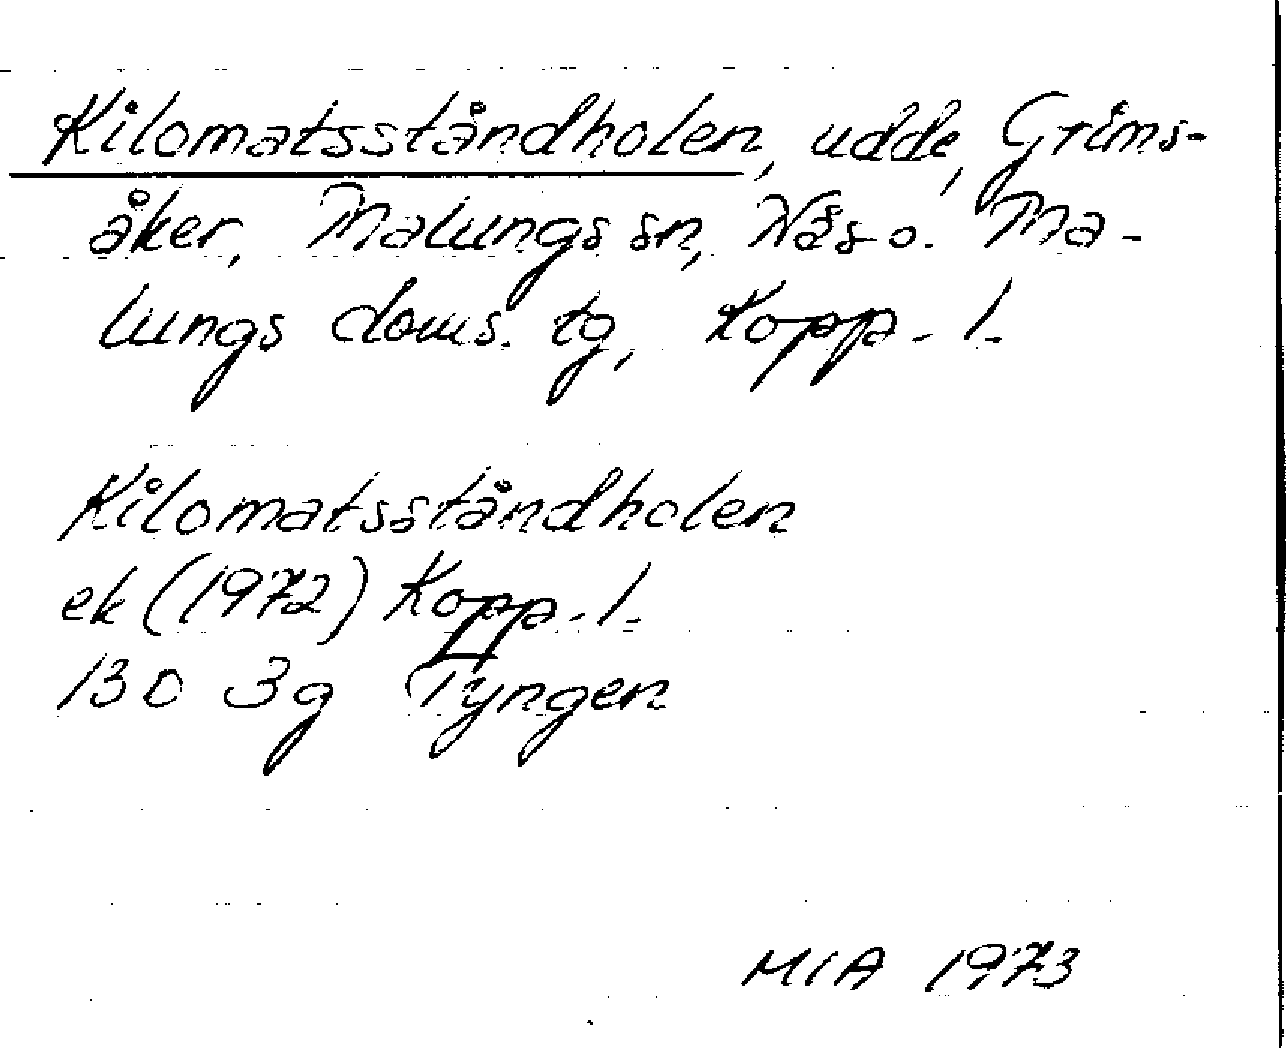 Kilomatsståndholen, udde, Grims-
åker, Malungs sn, Nås o. Ma-
lungs doms. tg, Kopp. l.
Kilomatsståndholen
ek (1972) Kopp. l.
13D 3g Tyngen
MIA 1973